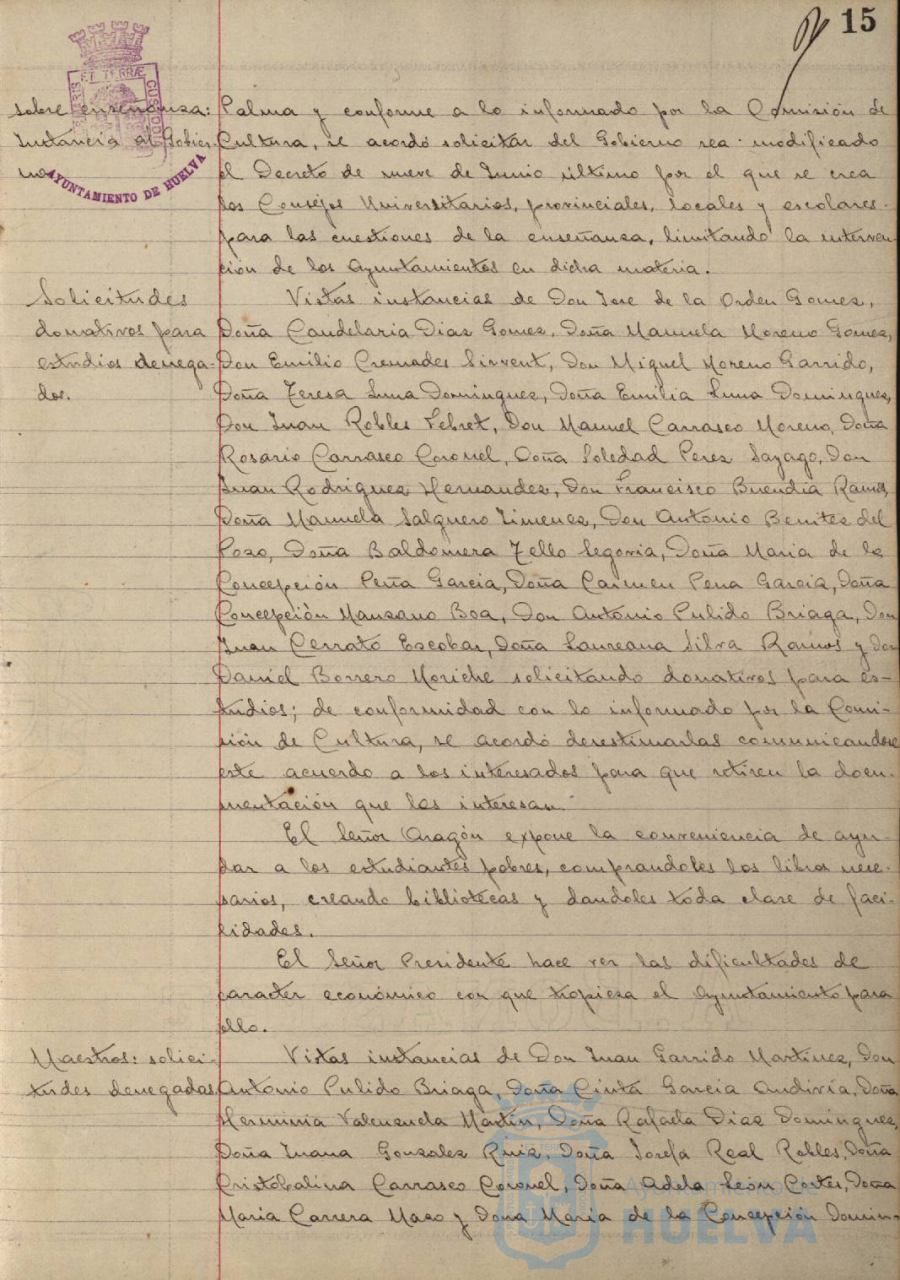 15
PORTUS MARIS ET TERRÆ CUSTODIA
AYUNTAMIENTO DE HUELVA
sobre enseñanza:
Instancia al Gobier-
no
Palma y conforme a lo informado por la Comisión de
Cultura, se acordó solicitar del Gobierno sea modificado
el Decreto de nueve de Junio último por el que se crea
los Consejos Universitarios, provinciales, locales y escolares
para las cuestiones de la enseñanza, limitando la interven-
ción de los Ayuntamientos en dicha materia.
Solicitudes
donativos para
estudios denega-
dos.
Vistas instancias de Don Jose de la Orden Gomez,
Doña Candelaria Diaz Gomez, Doña Manuela Moreno Gomez,
Don Emilio Cremades Sirvent, Don Miguel Moreno Garrido,
Doña Teresa Luna Dominguez, Doña Emilia Luna Dominguez,
Don Juan Robles Febret, Don Manuel Carrasco Moreno, Doña
Rosario Carrasco Coronel, Doña Soledad Perez Sayago, Don
Juan Rodriguez Hernandez, Don Francisco Buendia Ramos,
Doña Manuela Salguero Jimenez, Don Antonio Benitez del
Pozo, Doña Baldomera Tello Segovia, Doña Maria de la
Concepción Peña Garcia, Doña Carmen Pena Garcia, Doña
Concepción Manzano Boa, Don Antonio Pulido Briaga, Don
Juan Cerrato Escobar, Doña Laureana Silva Ramos y don
David Borrero Moriche solicitando donativos para es-
tudios; de conformidad con lo informado por la Comi-
sión de Cultura, se acordó desestimarlas comunicandose
este acuerdo a los interesados para que retiren la docu-
mentación que les interesan.
El Señor Aragón expone la conveniencia de ayu-
dar a los estudiantes pobres, comprandoles los libros nece-
sarios, creando bibliotecas y dandoles toda clase de faci-
lidades.
El Señor Presidente hace ver las dificultades de
caracter económico con que tropieza el Ayuntamiento para
ello.
Maestros: solici-
tudes denegadas
Vistas instancias de Don Juan Garrido Martinez, Don
Antonio Pulido Briaga, Doña Cinta Garcia Andivia, Doña
Herminia Valenzuela Martin, Doña Rafaela Diaz Dominguez,
Doña Juana Gonzalez Ruiz, Doña Josefa Real Robles, Doña
Cristobalina Carrasco Coronel, Doña Adela León Cortes, Doña
Maria Carrera Mazo y Doña Maria de la Concepción Domin-
Ayuntamiento de
HUELVA